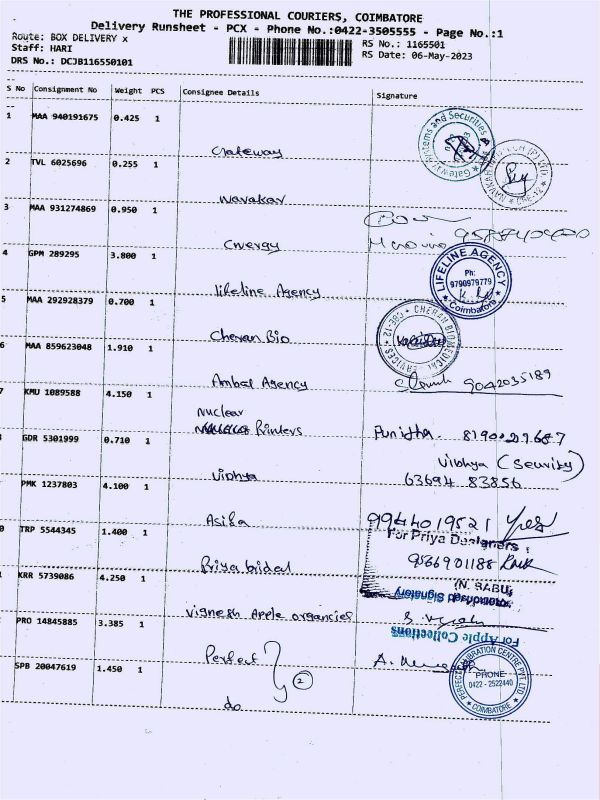 THE PROFESSIONAL COURIERS, COIMBATORE
Delivery Runsheet - PCX - Phone No.:0422-3505555 - Page No.:1
Route: BOX DELIVERY x
RS No.: 1165501
Staff: HARI
RS Date: 06-May-2023
DRS No.: DCJB116550101
S No Consignment No Weight PCS Consignee Details Signature
1 MAA 940191675 0.425 1
Gateway
Gateway Systems and Securities
2 TVL 6025696 0.255 1
Navakar
3 MAA 931274869 0.950 1
Cnergy
4 GPM 289295 3.800 1
lifeline Agency
LIFELINE AGENCY
Ph:
9790979779
Coimbatore
5 MAA 292928379 0.700 1
Cheran Bio
CHERAN BIOMEDICAL SERVICES
CBE-12
6 MAA 859623048 1.910 1
Ambal Agency
9042035189
7 KMU 1089588 4.150 1
Nuclear
Printers
Punitha. 8190027687
8 GDR 5301999 0.710 1
Vibhya (Seurity)
Vibhya
63694 83856
PMK 1237803 4.100 1
Asifa
9944019521
0 TRP 5544345 1.400 1
For Priya Designers
9566901188
Priya bridal
KRR 5739086 4.250 1
(N. BABU)
Authorised Signatory
Vignesh Apple organcies
PRO 14845885 3.385 1
For Apple Collections
Perfect
2
SPB 20047619 1.450 1
do
PERFECT CALIBRATION CENTRE PVT LTD
PHONE
0422 - 2522440
COIMBATORE